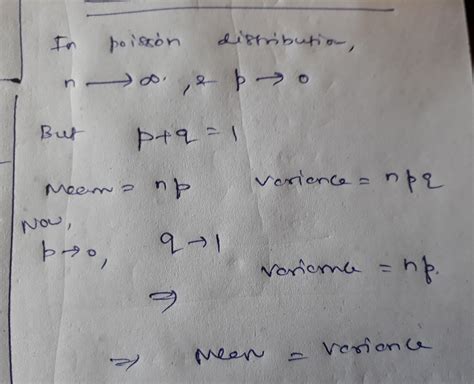 In poisson distribution,
n → ∞, & p → 0
But p+q = 1
Mean = np Variance = npq
Now,
p→0, q→1
Variance = np.
⇒
⇒ Mean = Variance